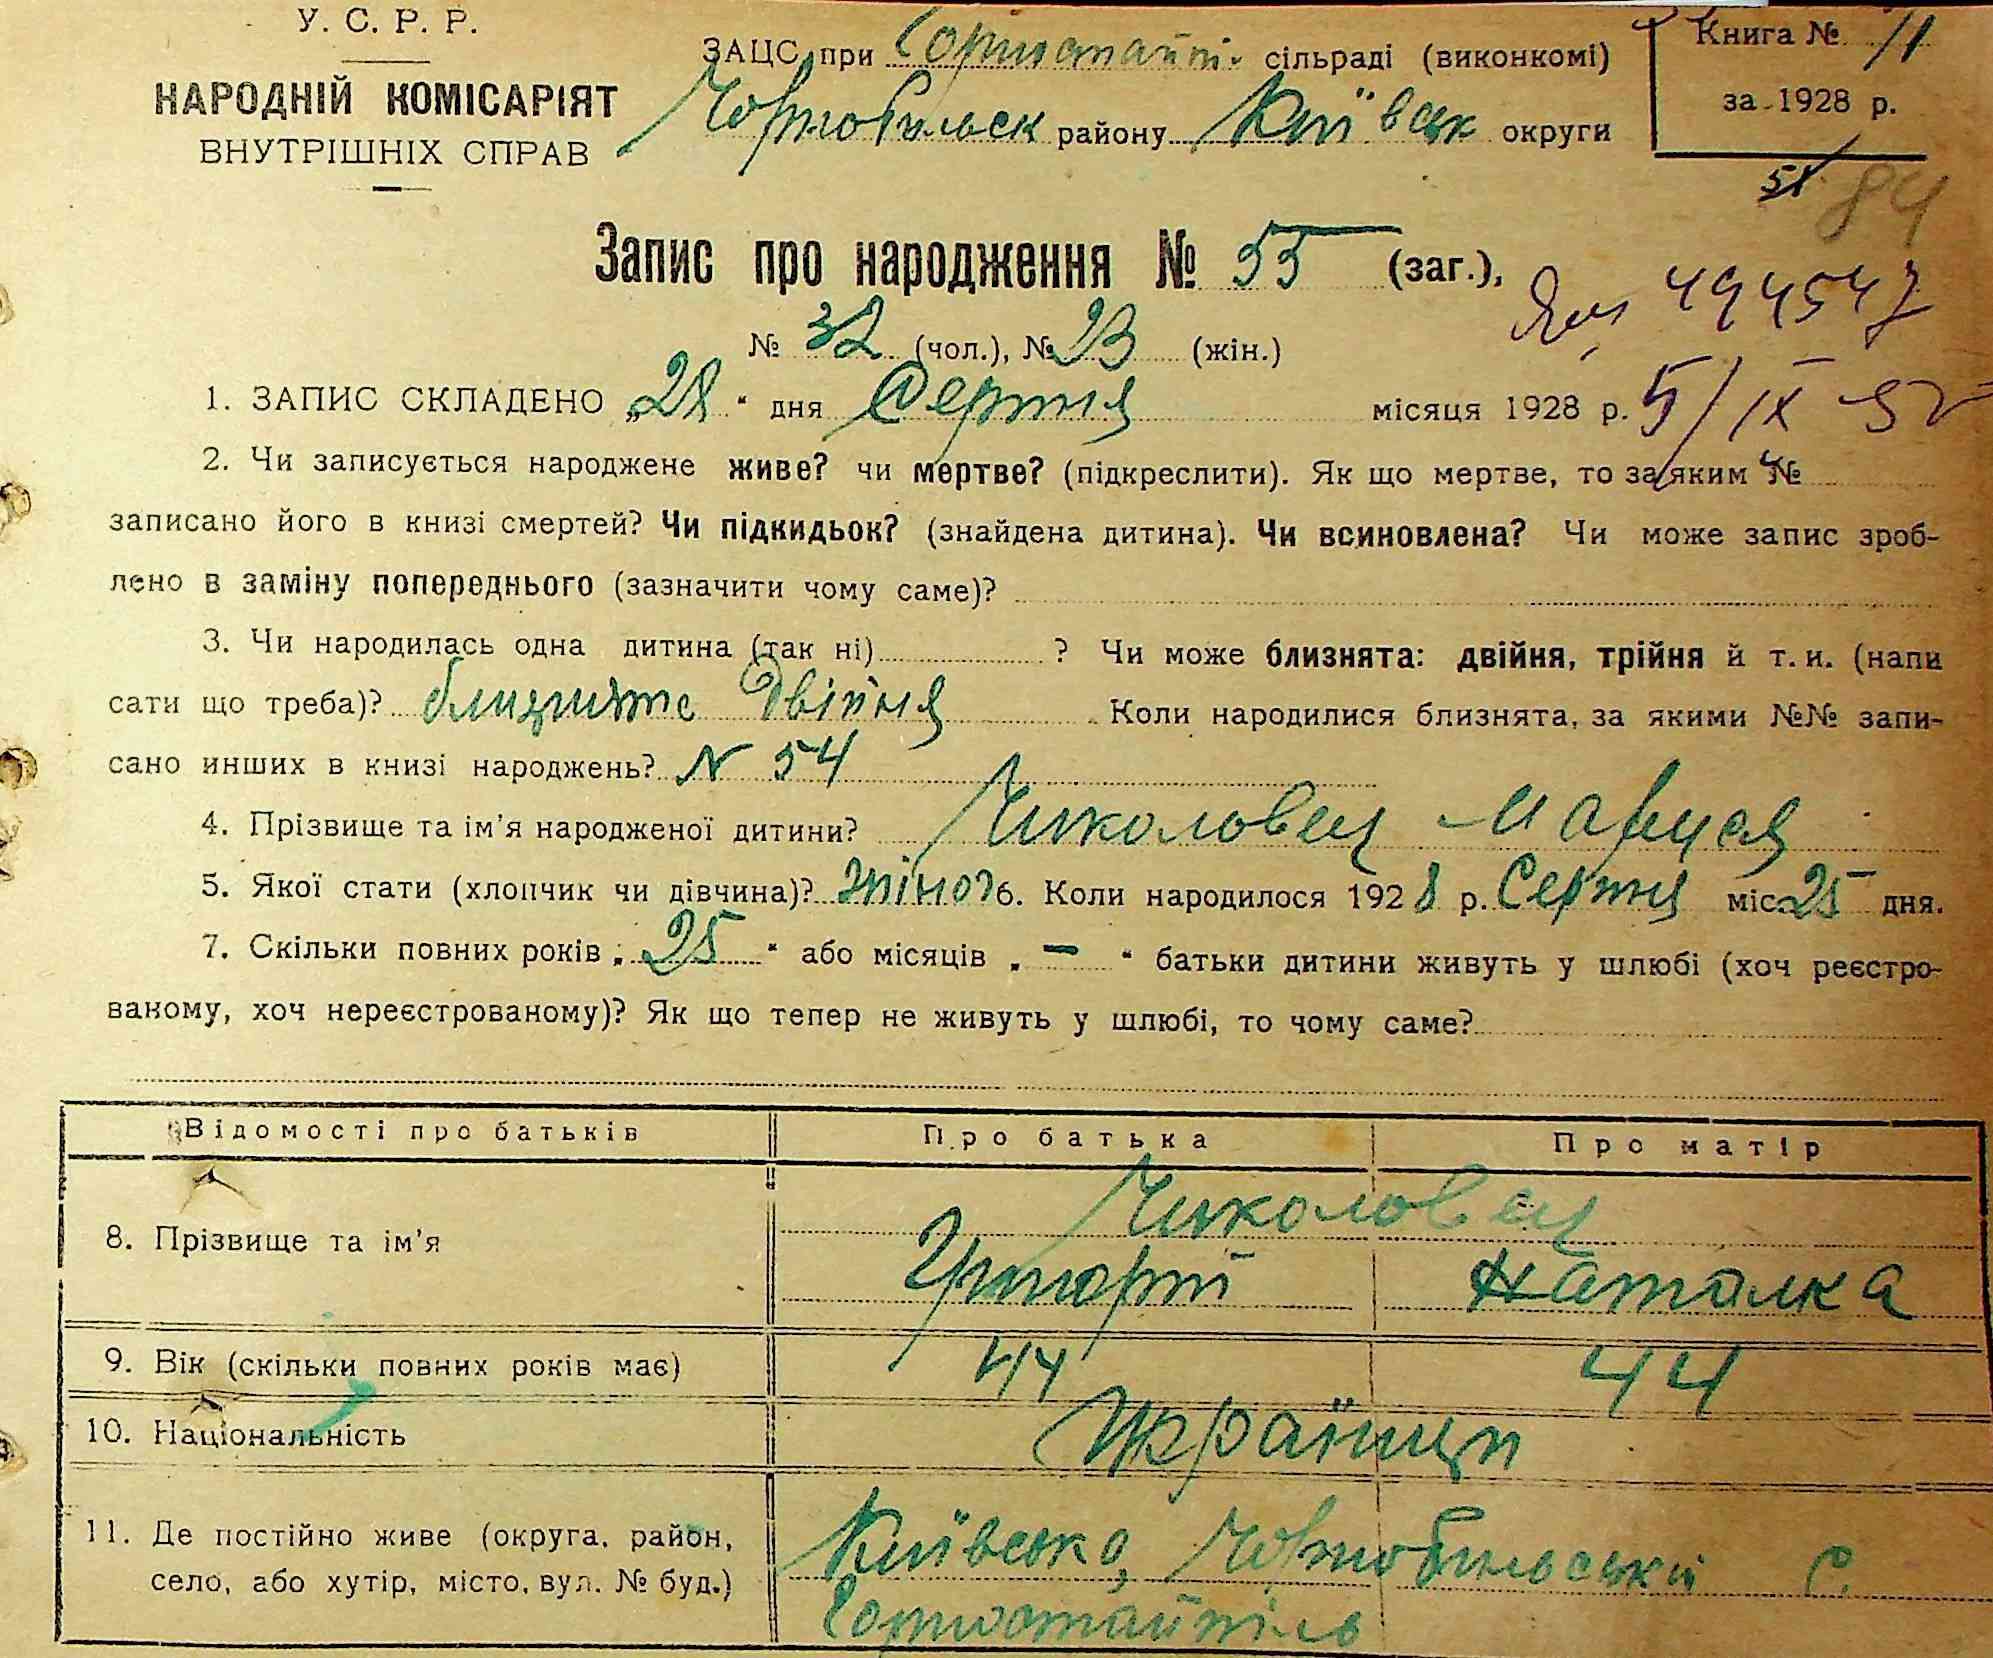 У. С. Р. Р.
НАРОДНІЙ КОМІСАРІЯТ
ВНУТРІШНІХ СПРАВ
ЗАЦС при Горностайпі. сільраді (виконкомі)
Чорнобильськ району Київськ округи
Книга № 11
за 1928 р.
84
Запис про народження № 55 (заг.),
№ 32 (чол.), № 23 (жін.)
494547
1. ЗАПИС СКЛАДЕНО „28“ дня Серпня місяця 1928 р. 5/IX
2. Чи записується народжене живе? чи мертве? (підкреслити). Як що мертве, то за яким №
записано його в книзі смертей? Чи підкидьок? (знайдена дитина). Чи всиновлена? Чи може запис зроб-
лено в заміну попереднього (зазначити чому саме)?
3. Чи народилась одна дитина (так ні) ? Чи може близнята: двійня, трійня й т. и. (напи
сати що треба)? близняте Двійня Коли народилися близнята, за якими №№ запи-
сано инших в книзі народжень? N 54
4. Прізвище та ім'я народженої дитини? Чиколовец Маруся
5. Якої стати (хлопчик чи дівчина)? жіноч 6. Коли народилося 1928 р. Серпня міс. 25 дня.
7. Скільки повних років „ 25 “ або місяців „ — “ батьки дитини живуть у шлюбі (хоч реєстро-
ваному, хоч нереєстрованому)? Як що тепер не живуть у шлюбі, то чому саме?
Відомості про батьків Про батька Про матір
Чиколовец
8. Прізвище та ім'я Григорій Наталка
9. Вік (скільки повних років має) 44 44
10. Національність Українци
11. Де постійно живе (округа, район, Київська, Чорнобильський с.
село, або хутір, місто, вул. № буд.) Горностайпіль